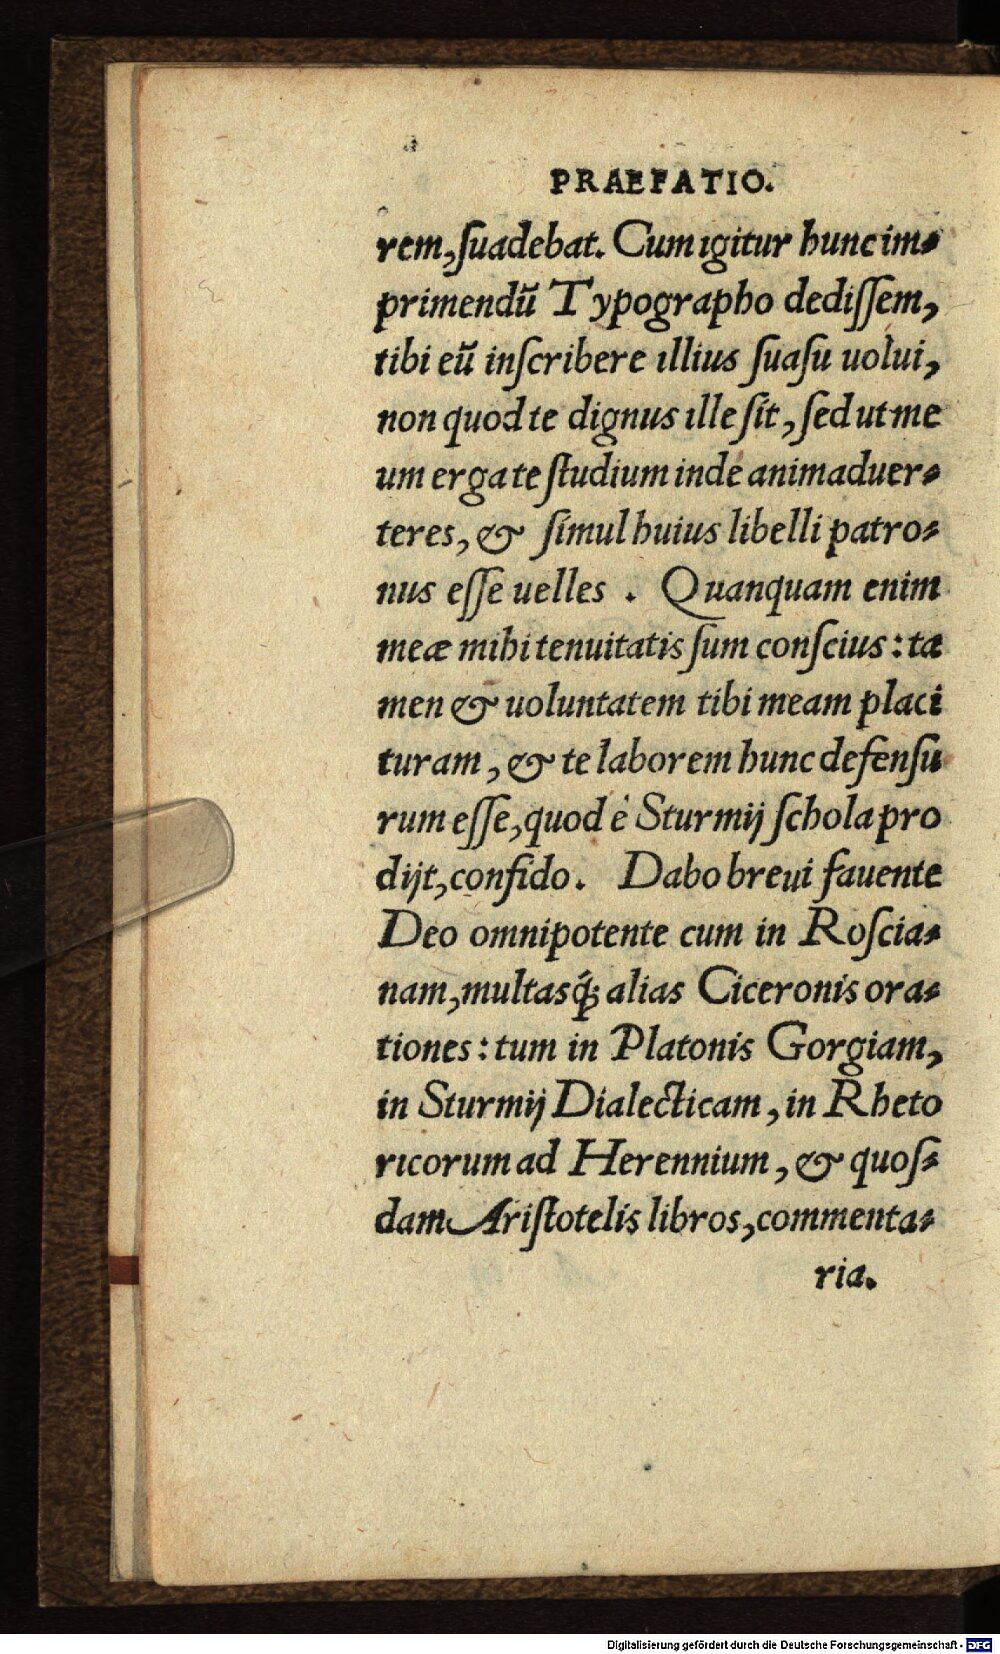 PRAEFATIO.
rem, ſuadebat. Cum igitur hunc im-
primendũ Typographo dediſſem,
tibi eũ inſcribere illius ſuaſu uolui,
non quod te dignus ille ſit, ſed ut me
um erga te ſtudium inde animaduer-
teres, & ſimul huius libelli patro-
nus eſſe uelles. Quanquam enim
meæ mihi tenuitatis ſum conſcius: ta
men & uoluntatem tibi meam placi
turam, & te laborem hunc defenſu
rum eſſe, quod è Sturmij ſchola pro
dijt, confido. Dabo breui fauente
Deo omnipotente cum in Roſcia-
nam, multasq́; alias Ciceronis ora-
tiones: tum in Platonis Gorgiam,
in Sturmij Dialecticam, in Rheto
ricorum ad Herennium, & quoſ-
dam Ariſtotelis libros, commenta-
ria.
Digitalisierung gefördert durch die Deutsche Forschungsgemeinschaft - DFG